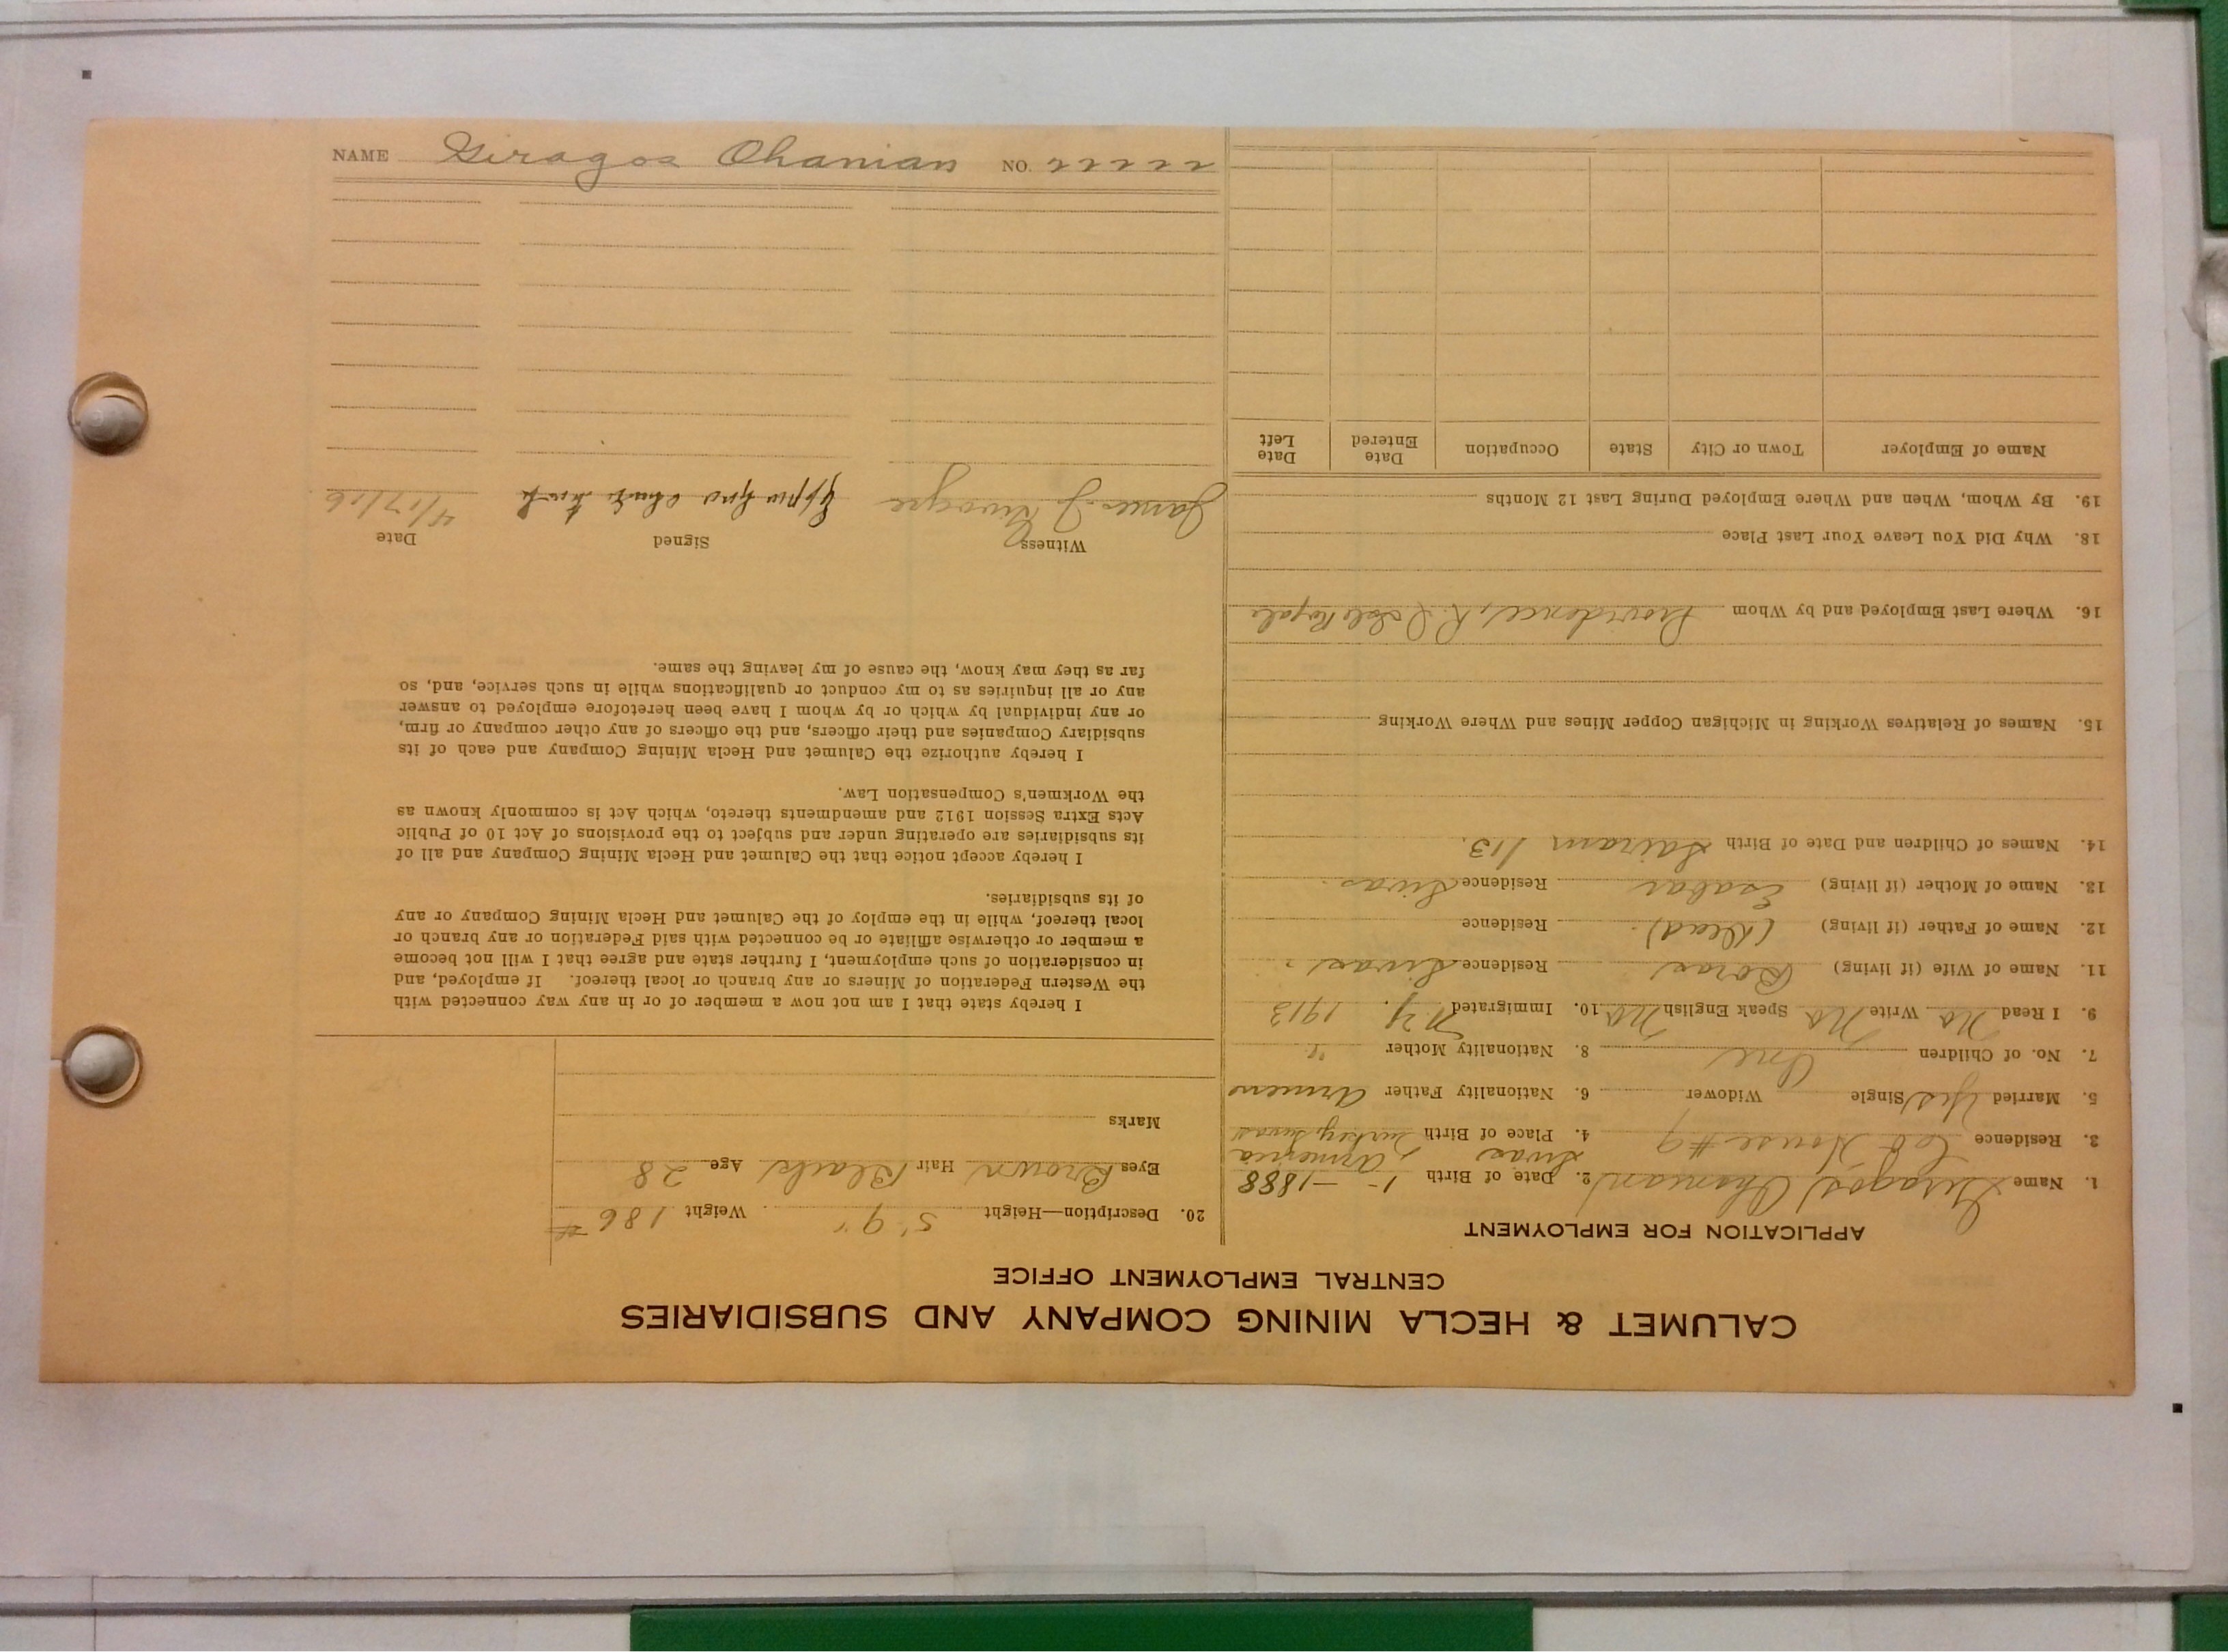 CALUMET & HECLA MINING COMPANY AND SUBSIDIARIES
CENTRAL EMPLOYMENT OFFICE
APPLICATION FOR EMPLOYMENT
1. Name Giragos Ohanian 2. Date of Birth 1-1888
Sivas, Armenia
3. Residence Co House #9 4. Place of Birth Turkey Sivas
5. Married Yes Single Widower 6. Nationality Father Armens
7. No. of Children One 8. Nationality Mother "
9. I Read No Write No Speak English No 10. Immigrated N.Y. 1913
11. Name of Wife (if living) Residence Sivas
12. Name of Father (if living) (Dead). Residence
13. Name of Mother (if living) Residence Sivas.
14. Names of Children and Date of Birth 1/13.
15. Names of Relatives Working in Michigan Copper Mines and Where Working
16. Where Last Employed and by Whom Providence, R.I. Isle Royale
18. Why Did You Leave Your Last Place
19. By Whom, When and Where Employed During Last 12 Months
Name of Employer Town or City State Occupation Date Entered Date Left
20. Description—Height 5' 9" Weight 186 #
Eyes Brown Hair Black Age 28
Marks
I hereby state that I am not now a member of or in any way connected with
the Western Federation of Miners or any branch or local thereof. If employed, and
in consideration of such employment, I further state and agree that I will not become
a member or otherwise affiliate or be connected with said Federation or any branch or
local thereof, while in the employ of the Calumet and Hecla Mining Company or any
of its subsidiaries.
I hereby accept notice that the Calumet and Hecla Mining Company and all of
its subsidiaries are operating under and subject to the provisions of Act 10 of Public
Acts Extra Session 1912 and amendments thereto, which Act is commonly known as
the Workmen's Compensation Law.
I hereby authorize the Calumet and Hecla Mining Company and each of its
subsidiary Companies and their officers, and the officers of any other company or firm,
or any individual by which or by whom I have been heretofore employed to answer
any or all inquiries as to my conduct or qualifications while in such service, and, so
far as they may know, the cause of my leaving the same.
Witness Signed Date
James J. 4/17/16
NAME Giragos Ohanian NO.